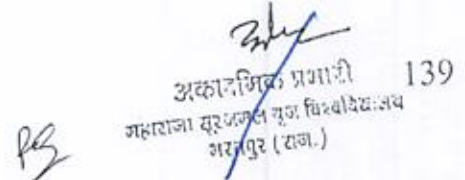 अकादमिक प्रभारी
139
महाराजा सूरजमल बृज विश्वविद्यालय
भरतपुर (राज.)